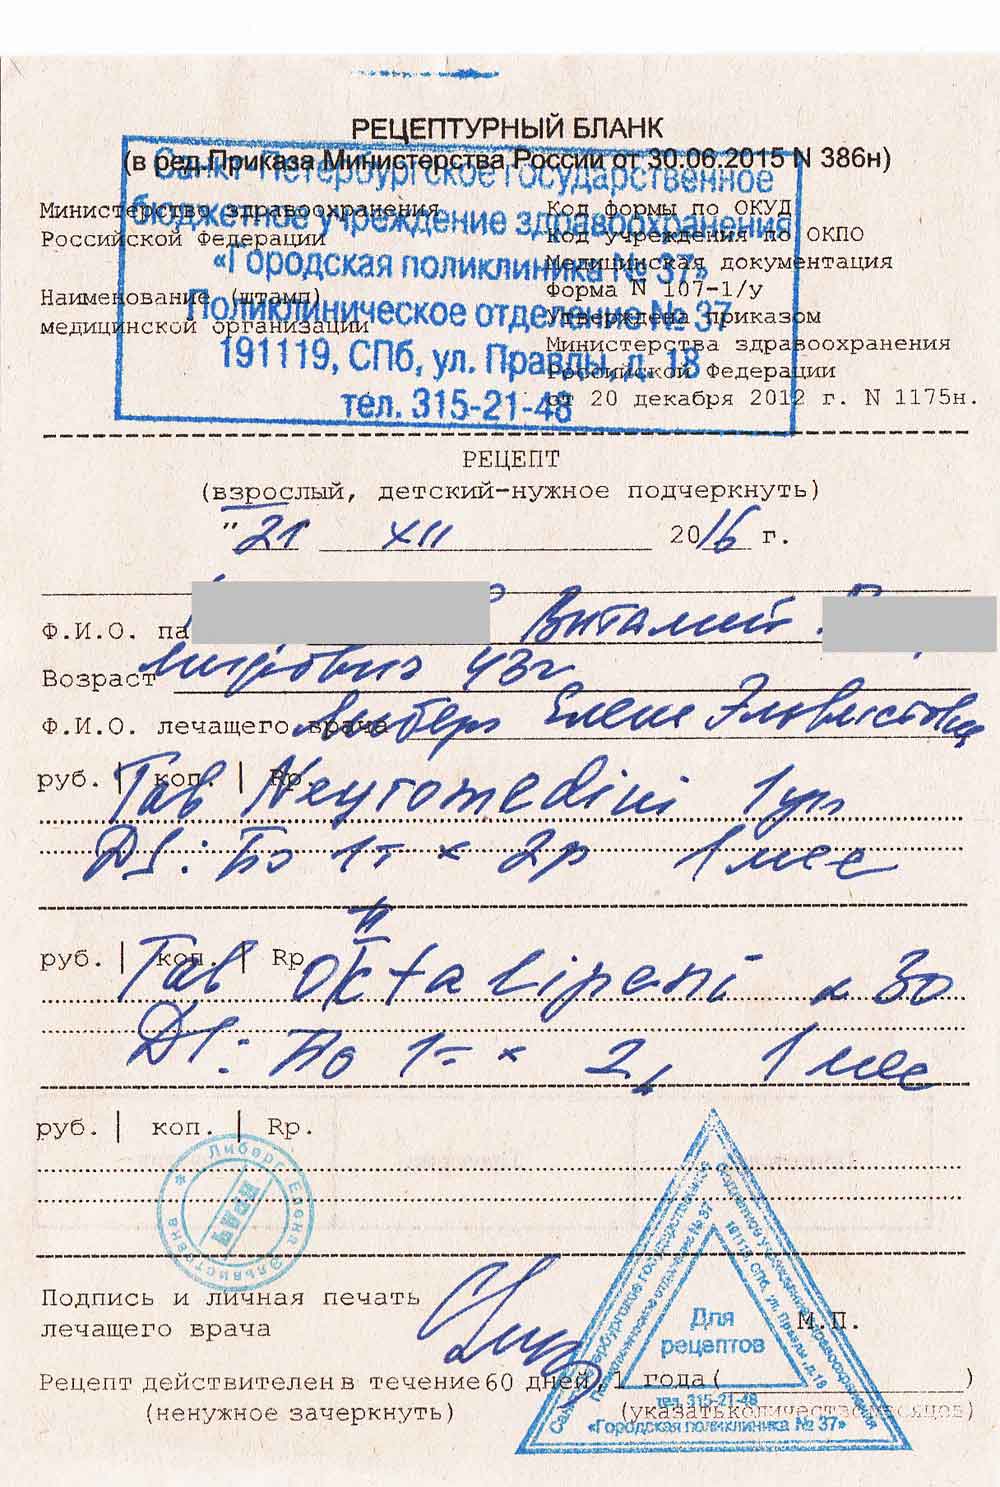 РЕЦЕПТУРНЫЙ БЛАНК
(в ред.Приказа Министерства России от 30.06.2015 N 386н)
Санкт-Петербургское государственное
бюджетное учреждение здравоохранения
«Городская поликлиника № 37»
Поликлиническое отделение № 37
191119, СПб, ул. Правды, д. 18
тел. 315-21-48
Министерство здравоохранения
Российской Федерации
Наименование (штамп)
медицинской организации
Код формы по ОКУД
Код учреждения по ОКПО
Медицинская документация
Форма N 107-1/у
Утверждена приказом
Министерства здравоохранения
Российской Федерации
от 20 декабря 2012 г. N 1175н.
РЕЦЕПТ
(взрослый, детский-нужное подчеркнуть)
"21 XII 2016 г.
Ф.И.О. па Виталий
Возраст 43г
Ф.И.О. лечащего врача Либерг Елена Эльвистовна
руб. | коп. | Rp.
Tab Neyromedini 1уп
DS: По 1т × 2р 1 мес
руб. | коп. | Rp
Tab Oktalipeni 30
DS: По 1т × 2 1 мес
руб. | коп. | Rp.
* Либерг Елена Эльвистовна
ВРАЧ
Подпись и личная печать
лечащего врача
М.П.
Рецепт действителен в течение 60 дней, 1 года ( )
(ненужное зачеркнуть) (указать количество месяцев)
Санкт-Петербургское государственное бюджетное учреждение здравоохранения
«Городская поликлиника № 37»
Поликлиническое отделение № 37
191119, СПб, ул. Правды, д.18
тел. 315-21-48
Для
рецептов